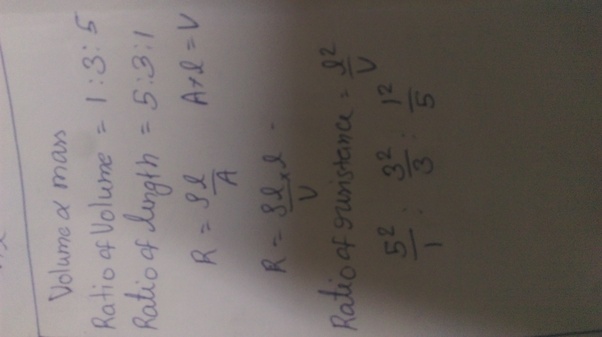 Volume α mass
Ratio of Volume = 1 : 3 : 5
Ratio of length = 5 : 3 : 1
R = ρl/A    A×l = V
R = ρl×l/V
Ratio of resistance = l²/V
5²/1 : 3²/3 : 1²/5